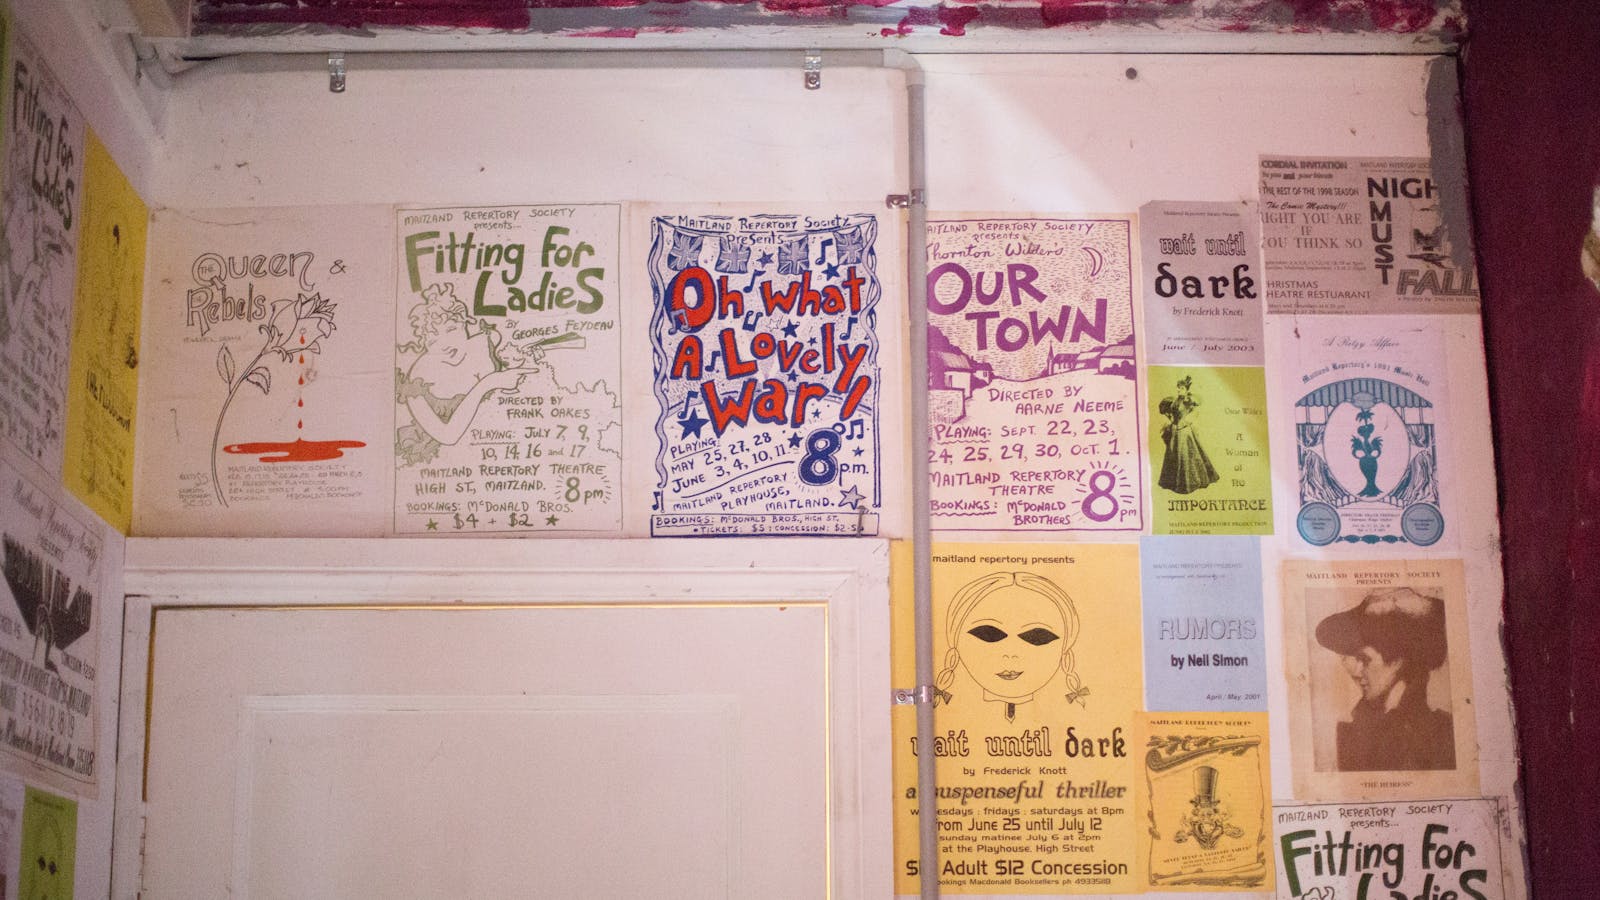 Fitting for
Ladies
THE
Queen &
Rebels
MAITLAND REPERTORY SOCIETY
MAITLAND REPERTORY SOCIETY
presents...
Fitting for
Ladies
BY
GEORGES FEYDEAU
DIRECTED BY
FRANK OAKES
PLAYING: JULY 7, 9,
10, 14, 16 and 17
MAITLAND REPERTORY THEATRE
HIGH ST, MAITLAND. 8pm
BOOKINGS: McDONALD BROS.
$4 + $2
MAITLAND REPERTORY SOCIETY
Presents
Oh what
A Lovely
War!
PLAYING
MAY 25, 27, 28
JUNE 3, 4, 10, 11.
8 p.m.
MAITLAND REPERTORY
PLAYHOUSE,
MAITLAND.
BOOKINGS: McDONALD BROS., HIGH ST.
TICKETS: $5: CONCESSION: $2.5
AITLAND REPERTORY SOCIETY
presents
Thornton Wilder's
OUR
TOWN
DIRECTED BY
AARNE NEEME
PLAYING: SEPT. 22, 23,
24, 25, 29, 30, OCT. 1.
MAITLAND REPERTORY
THEATRE
8pm
BOOKINGS: McDONALD
BROTHERS
Maitland Repertory Society Presents
wait until
dark
by Frederick Knott
June / July 2003
CORDIAL INVITATION
for you and your friends
THE REST OF THE 1998 SEASON
The Comic Mystery!!!
IGHT YOU ARE
IF
YOU THINK SO
CHRISTMAS
THEATRE RESTUARANT
MAITLAND REPERTORY SOC
NIGH
MUST
FALL
Oscar Wilde's
A
Woman
of
No
IMPORTANCE
MAITLAND REPERTORY PRODUCTION
A Ritzy Affair
Maitland Repertory's 1991 Music Hall
maitland repertory presents
wait until dark
by Frederick Knott
a suspenseful thriller
wednesdays : fridays : saturdays at 8pm
from June 25 until July 12
sunday matinee July 6 at 2pm
at the Playhouse, High Street
Adult $12 Concession
bookings Macdonald Booksellers ph 49335118
MAITLAND REPERTORY PRESENTS
RUMORS
by Neil Simon
April / May 2001
MAITLAND REPERTORY SOCIETY
MAITLAND REPERTORY SOCIETY
PRESENTS
"THE HEIRESS"
MAITLAND REPERTORY SOCIETY
presents...
Fitting for
Ladies